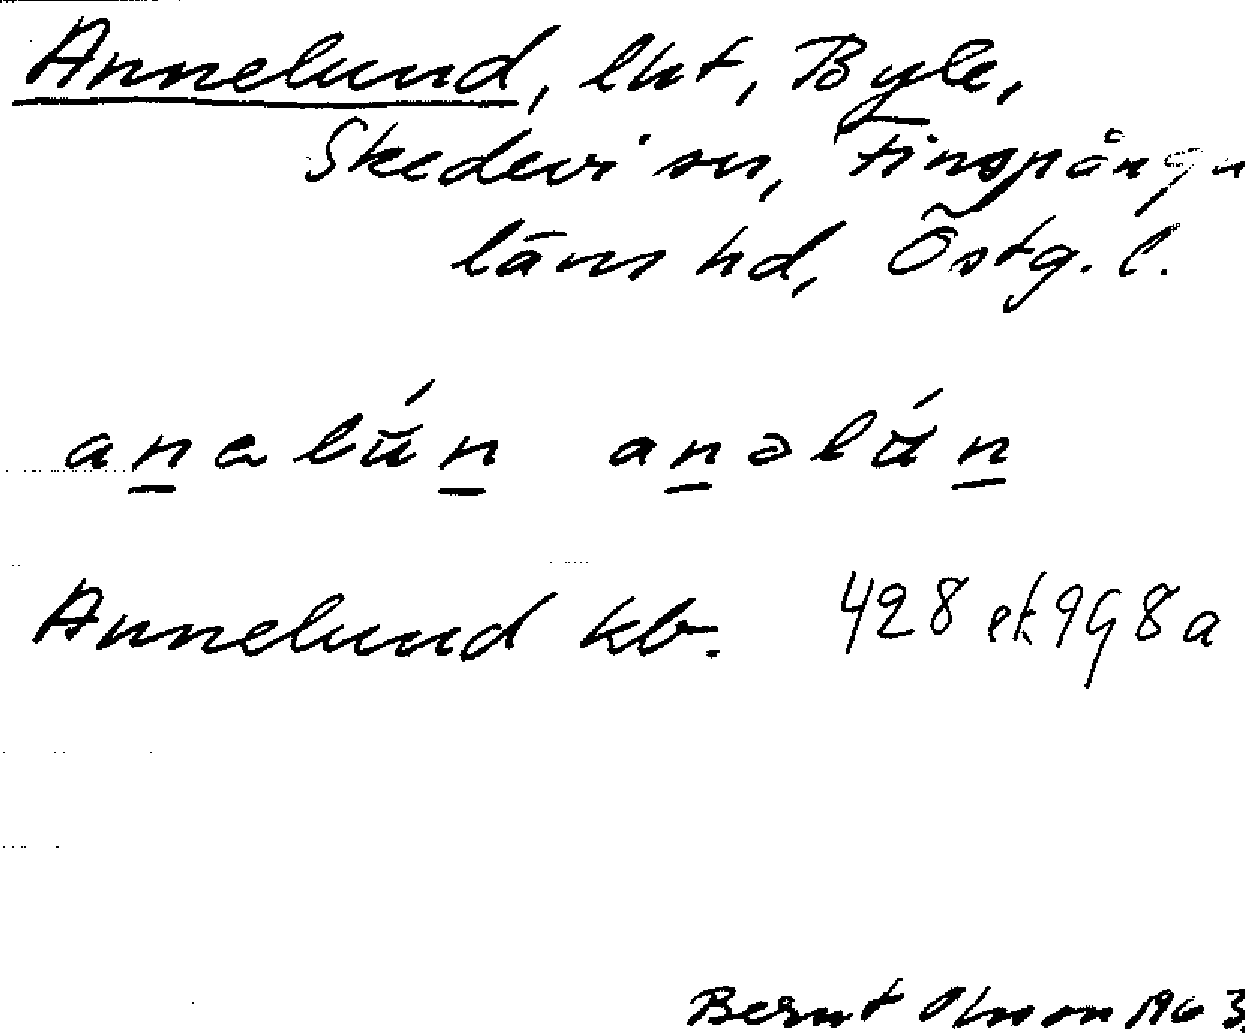 Annelund, lht, Byle,
Skedevi sn, Finspånga
läns hd, Östg. l.
anelún anəlún
Annelund kb. 428 ek 9G8a
Bernt Olsson 1963